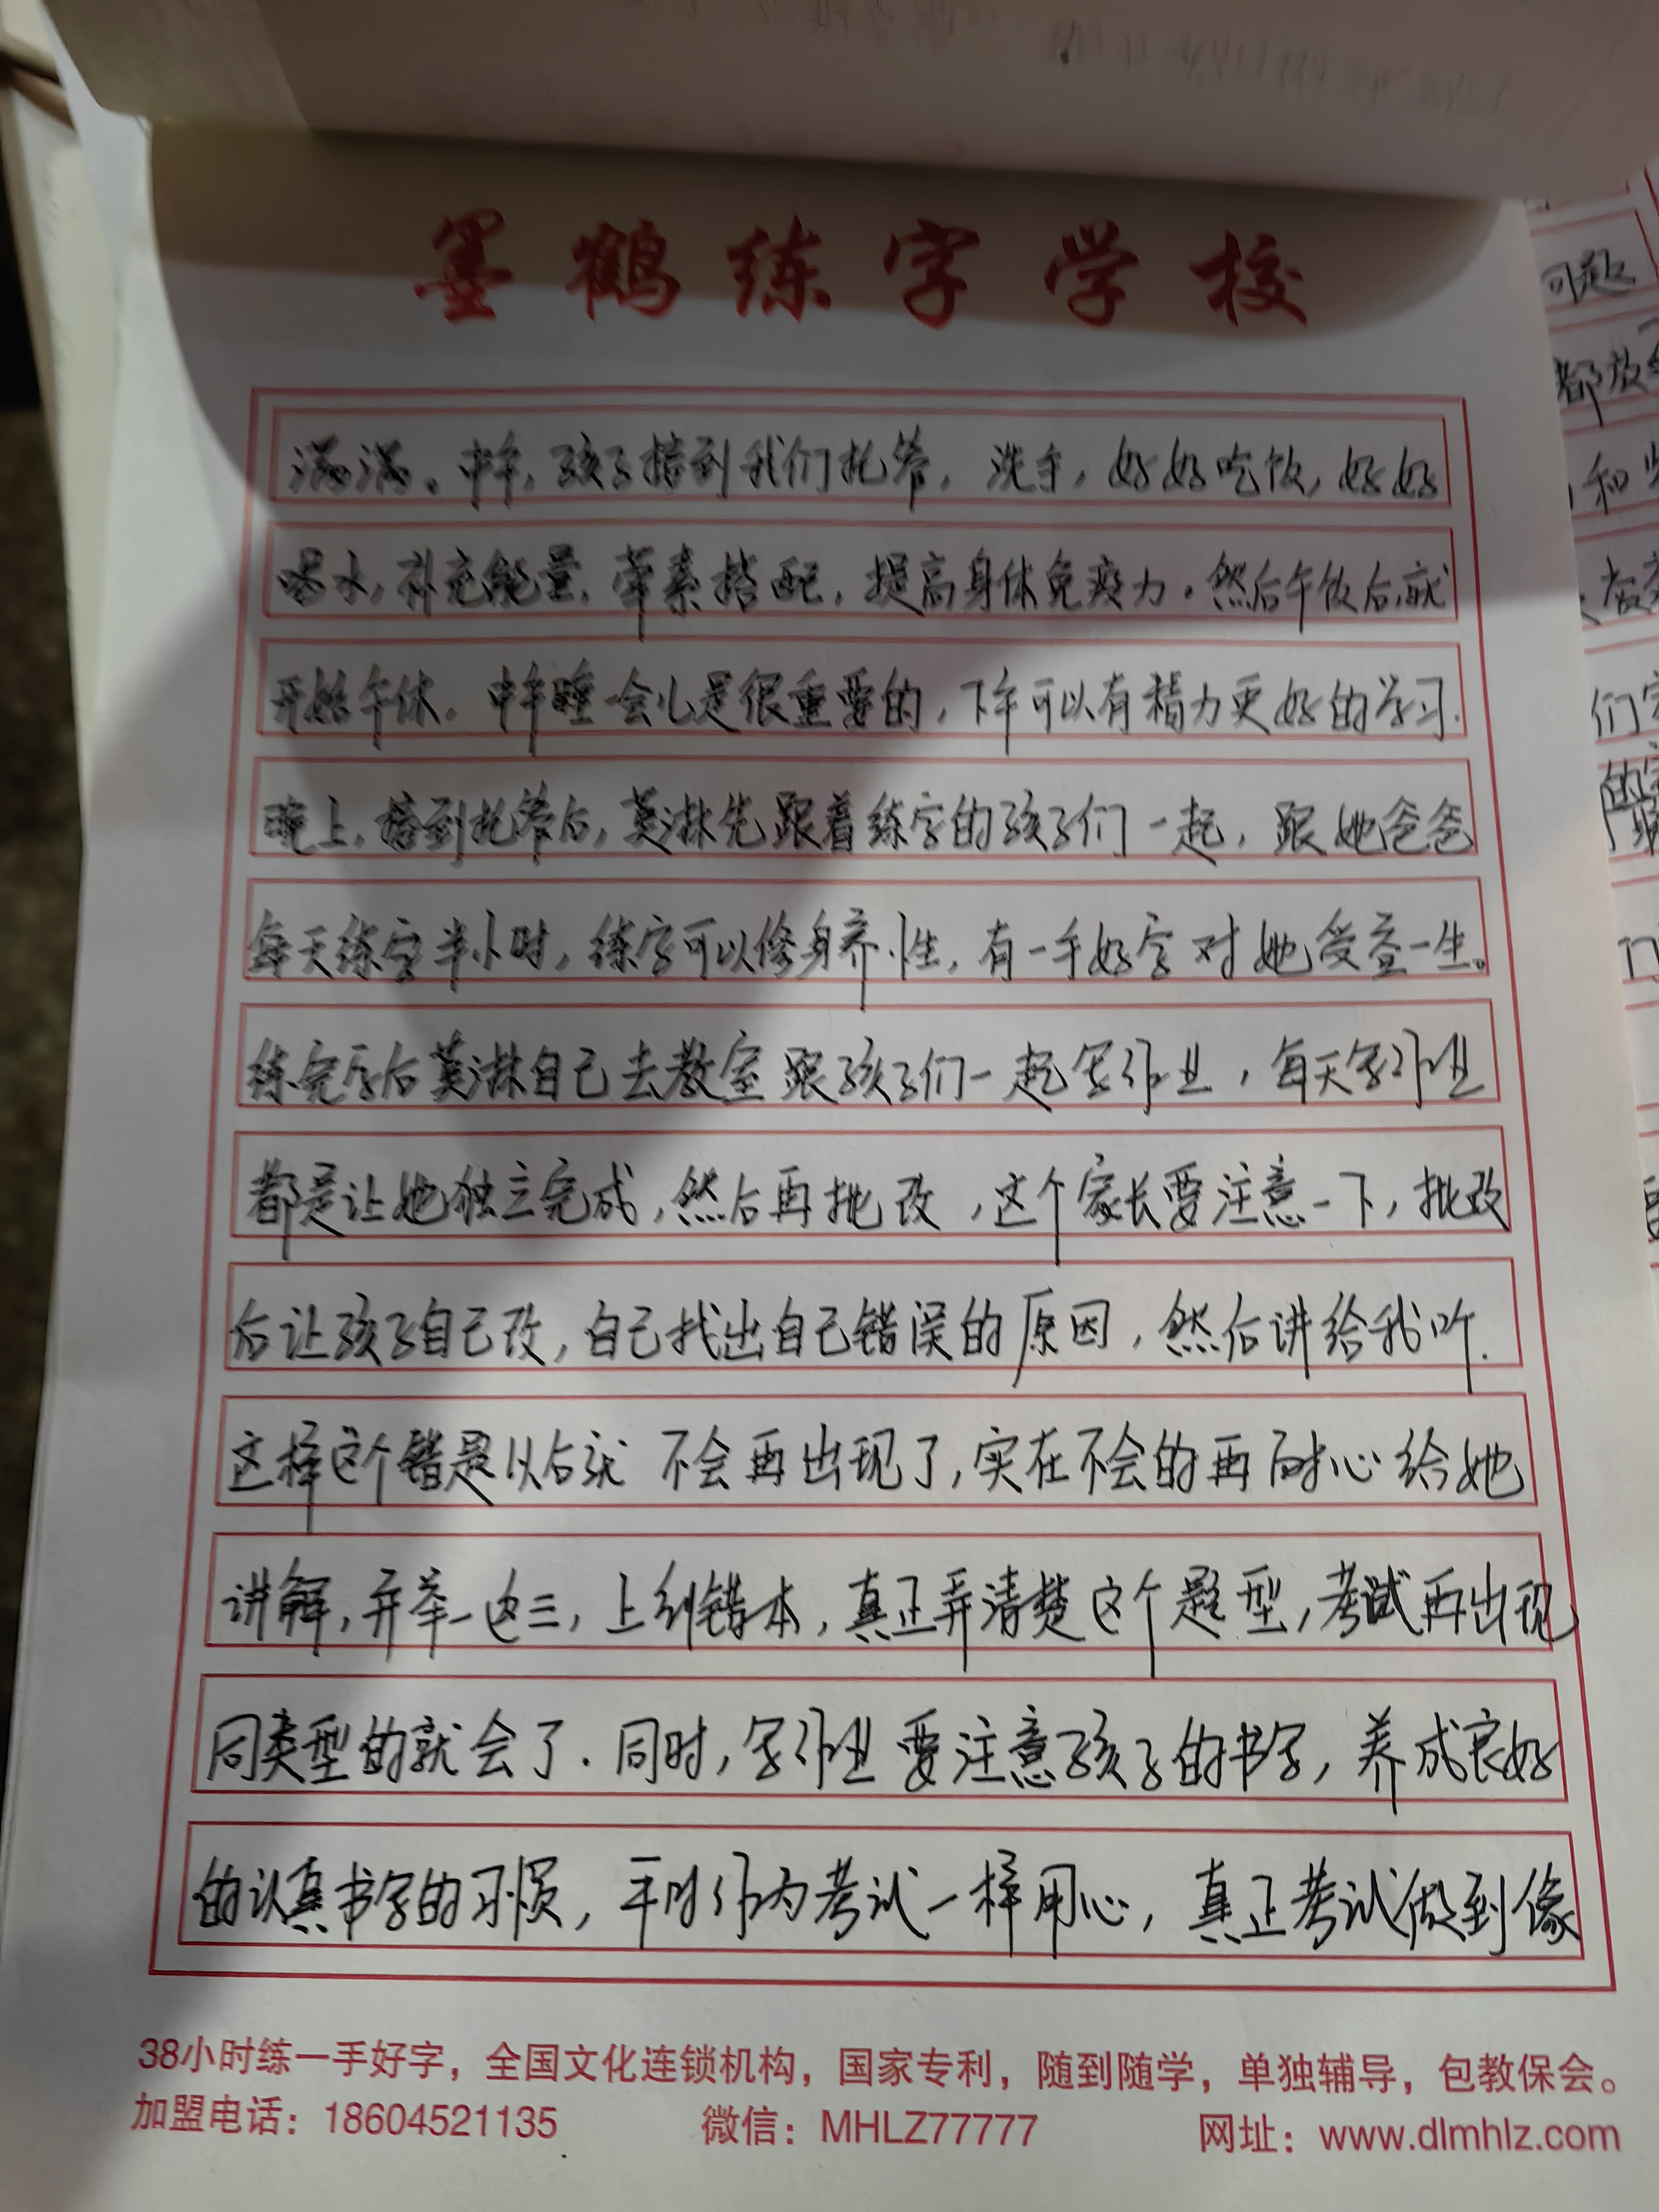 墨鹤练字学校
满满。中午,孩子接到我们托管,洗手,好好吃饭,好好
喝水,补充能量,荤素搭配,提高身体免疫力。然后午饭后就
开始午休。中午睡一会儿是很重要的,下午可以有精力更好的学习.
晚上,接到托管后,莫淋先跟着练字的孩子们一起,跟她爸爸
每天练字半小时,练字可以修身养性,有一手好字对她受益一生。
练完字后莫淋自己去教室跟孩子们一起写作业,每天写作业
都是让她独立完成,然后再批改,这个家长要注意一下,批改
后让孩子自己改,自己找出自己错误的原因,然后讲给我听.
这样这个错题以后就不会再出现了,实在不会的再耐心给她
讲解,并举一反三,上纠错本,真正弄清楚这个题型,考试再出现
同类型的就会了.同时,写作业要注意孩子的书写,养成良好
的认真书写的习惯,平时作为考试一样用心,真正考试做到像
38小时练一手好字,全国文化连锁机构,国家专利,随到随学,单独辅导,包教保会。
加盟电话:18604521135 微信:MHLZ77777 网址:www.dlmhlz.com
问题
都放
和
们
的